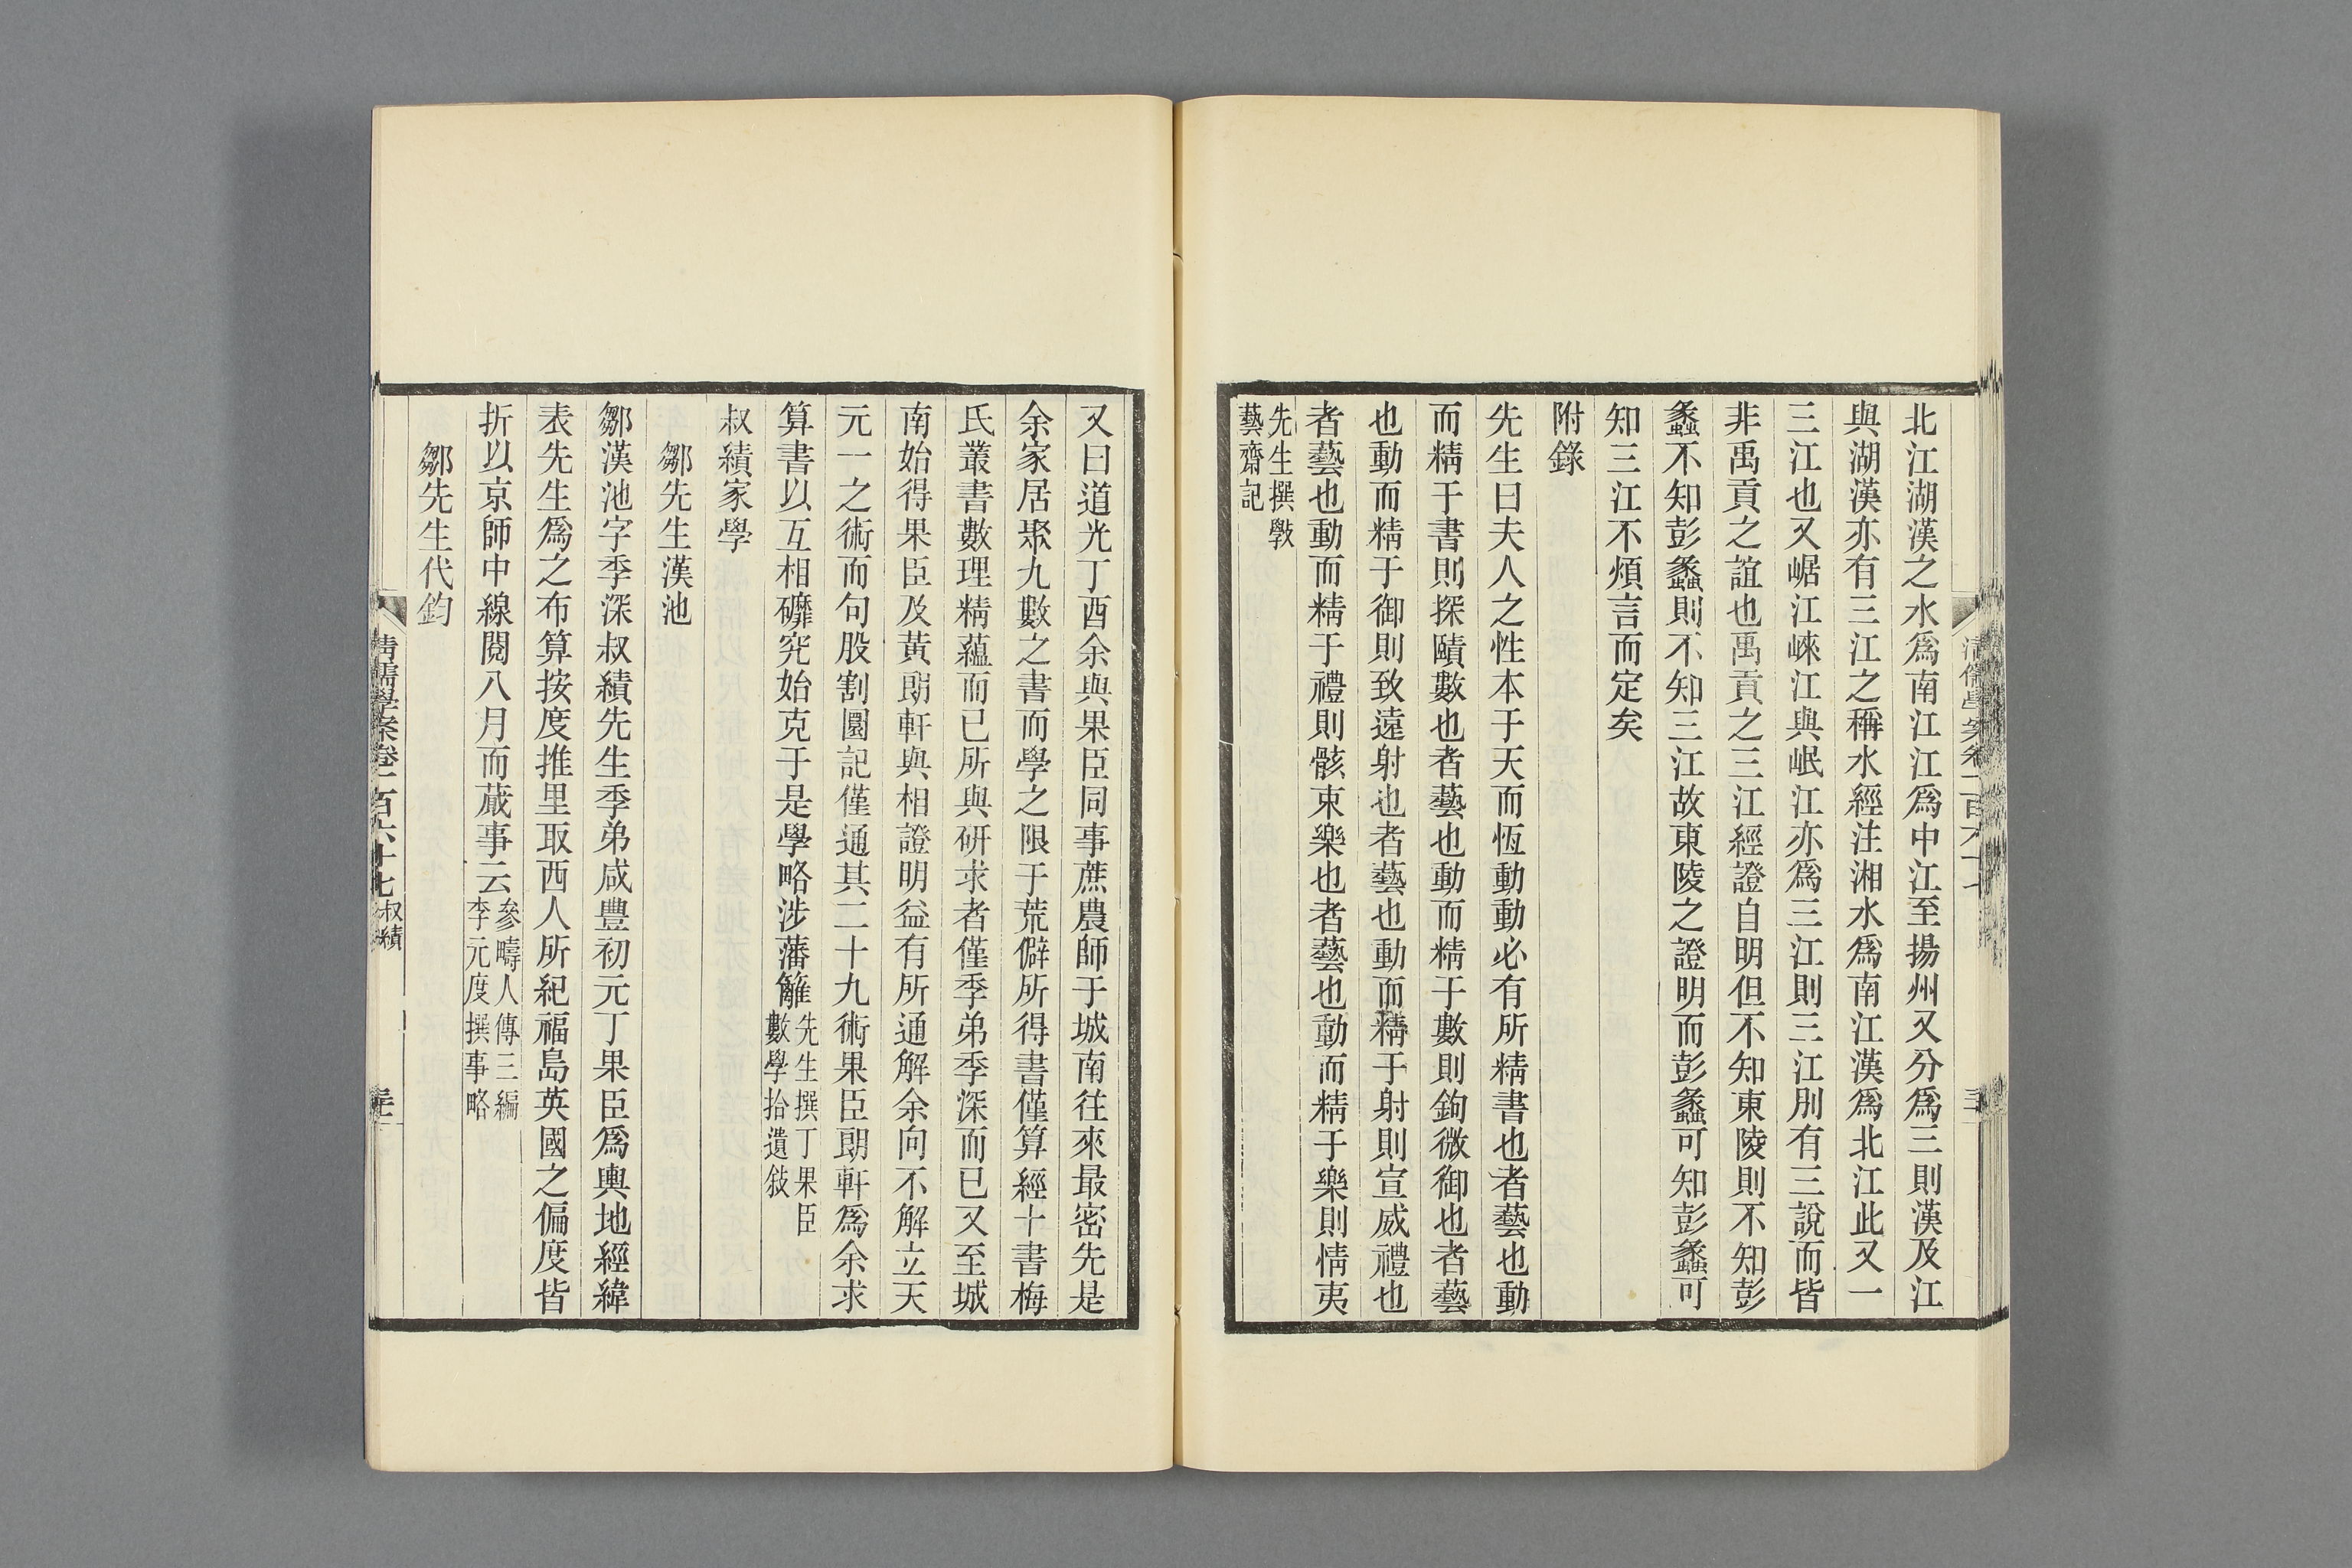 北江湖漢之水爲南江江爲中江至揚州又分爲三則漢及江
與湖漢亦有三江之稱水經注湘水爲南江漢爲北江此又一
三江也又崌江崍江與岷江亦爲三江則三江刖有三說而皆
非禹貢之誼也禹貢之三江經證自明但不知東陵則不知彭
蠡不知彭蠡則不知三江故東陵之證明而彭蠡可知彭蠡可
知三江不煩言而定矣
附錄
先生曰夫人之性本于天而恆動動必有所精書也者藝也動
而精于書則探賾數也者藝也動而精于數則鉤微御也者藝
也動而精于御則致遠射也者藝也動而精于射則宣威禮也
者藝也動而精于禮則骸束樂也者藝也動而精于樂則情夷
先生撰斅
藝齋記
又曰道光丁酉余與果臣同事蔗農師于城南往來最密先是
余家居聚九數之書而學之限于荒僻所得書僅算經十書梅
氏叢書數理精蘊而已所與研求者僅季弟季深而已又至城
南始得果臣及黃朗軒與相證明益有所通解余向不解立天
元一之術而句股割圜記僅通其二十九術果臣朗軒爲余求
算書以互相礳究始克于是學略涉藩籬先生撰丁果臣
數學拾遺敍
叔績家學
鄒先生漢池
鄒漢池字季深叔績先生季弟咸豐初元丁果臣爲輿地經緯
表先生爲之布算按度推里取西人所紀福島英國之偏度皆
折以京師中線閱八月而蕆事云參疇人傳三編
李元度撰事略
鄒先生代鈞
清儒學案卷一百六十七 叔績